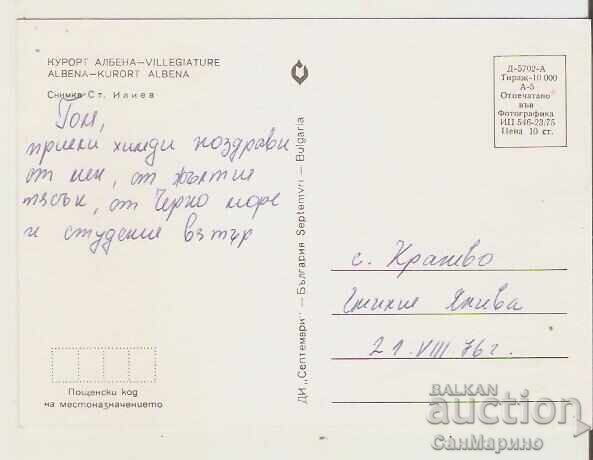 КУРОРТ АЛБЕНА—VILLEGIATURE
ALBENA—KURORT ALBENA
Снимка Ст. Илиев
приеми хиляди поздрави
от мен, от жълтия
пясък, от Черно море
и студения вятър
Пощенски код
на местоназначението
ДИ „Септември" — България Septemvri — Bulgaria
Д-5702-А
Тираж-10 000
А-5
Отпечатано
във
Фотографика
ИП 546-23.75
Цена 10 ст.
с. Кранево
Янива
21. VIII. 76 г.
BALKAN
auction
СанМарино